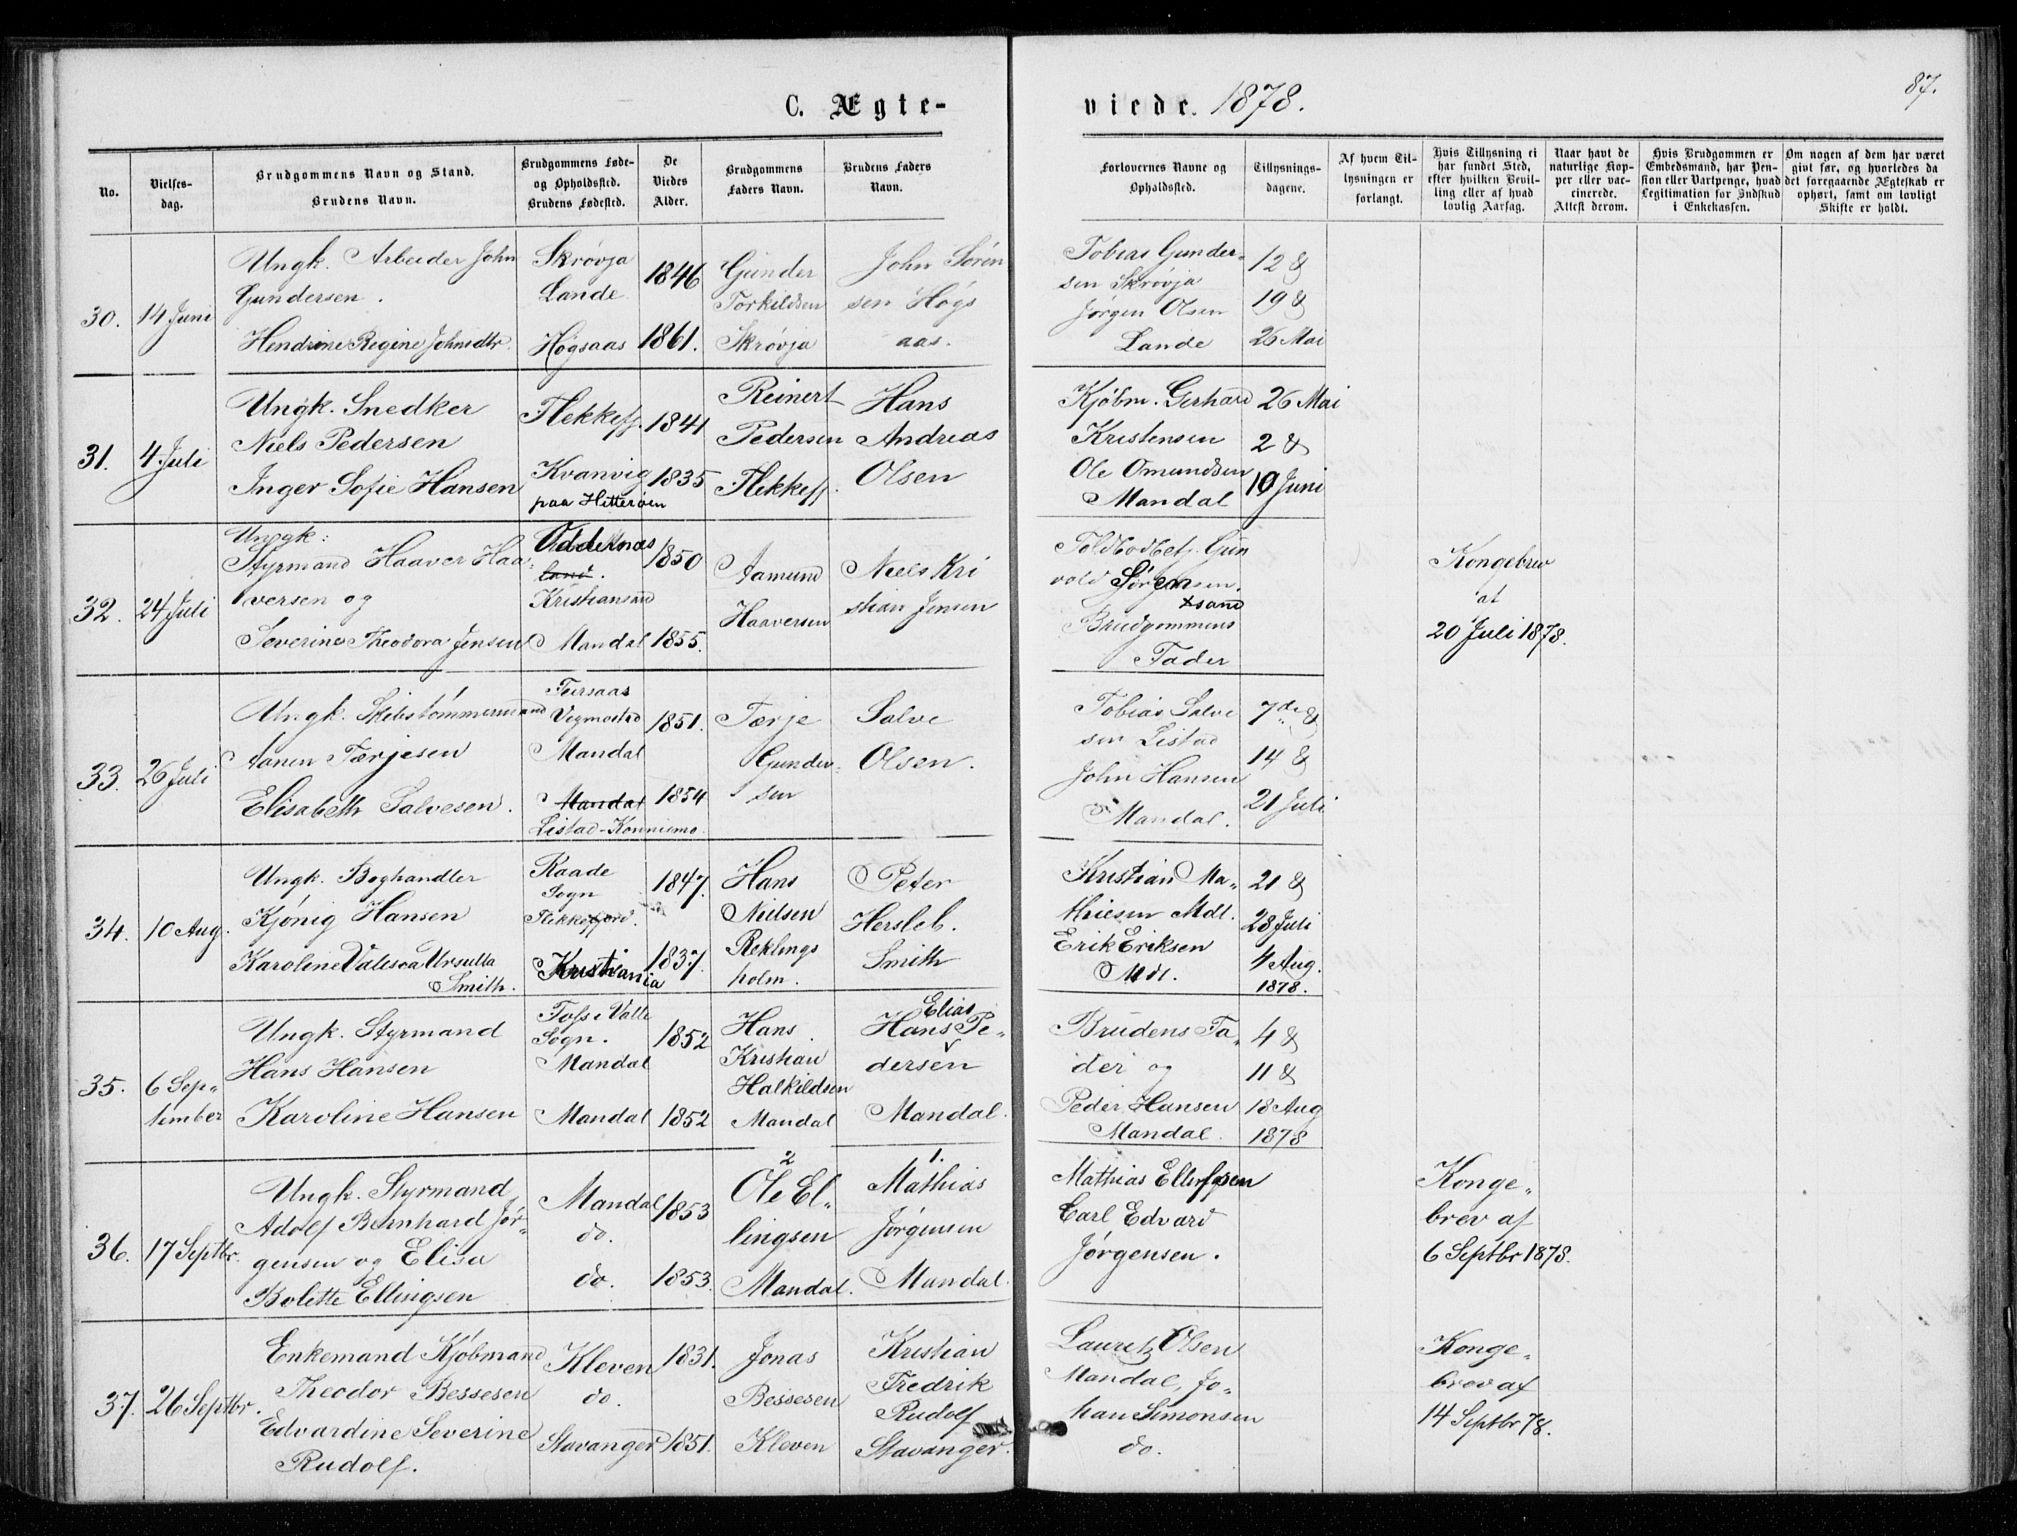 87.
C. Ægte-
viede. 1878.
No.
Vielses-
dag.
Brudgommens Navn og Stand.
Brudens Navn.
Brudgommens Føde-
og Opholdssted.
Brudens Fødested.
De
Viedes
Alder.
Brudgommens
Faders Navn.
Brudens Faders
Navn.
Forlovernes Navne og
Opholdssted.
Tillysnings-
dagene.
Af hvem Til-
lysningen er
forlangt.
Hvis Tillysning ei
har fundet Sted,
efter hvilken Bevil-
ling eller af hvad
lovlig Aarsag.
Naar havt de
naturlige Kop-
per eller vac-
cinerede.
Attest derom.
Hvis Brudgommen er
Embedsmand, har Pen-
sion eller Vartpenge, hvad
Legitimation for Indskud
i Enkekassen.
Om nogen af dem har været
givt før, og hvorledes da
det foregaaende Ægteskab er
ophørt, samt om lovligt
Skifte er holdt.
30.
14 Juni
Ungk. Arbeider John
Gundersen.
Hendrine Regine Johnsdtr.
Skrøvja
Lande
Høgsaas
1846
1861.
Gunder
Torkildsen
Skrøvja
John Sørin
sen Høgs
aas.
Tobias Gunder-
sen Skrøvja
Jørgen Olsen
Lande
12 &
19 &
26 Mai
31.
4 Juli
Ungk. Snedker
Niels Pedersen
Inger Sofie Hansen
Flekkefj.
Kvanvig
paa Hitterøen
1841
1835
Reinert
Pedersen
Flekkefj.
Hans
Andreas
Olsen
Kjøbm. Gerhard
Kristensen
Ole Omundsen
Mandal
26 Mai
2 &
10 Juni
32.
24 Juli
Ungk:
Styrmand Haaver Haa-
versen og
Severine Theodora Jensen
Oddernæs
land.
Kristiansand
Mandal
1850
1855.
Aamund
Haaversen
Niels Kri
stian Jensen
Toldbodbetj. Gun
vold Sørensen.
Xsand
Brudgommens
Fader
Kongebrev
af
20 Juli 1878.
33.
26 Juli
Ungk. Skibstømmermand
Aanen Tærjesen
Elisabeth Salvesen.
Vegmostad
Mandal
Mandal
Listad-Konnismo.
1851.
1854
Tærje
Gunder-
sen
Salve
Olsen.
Tobias Salve
sen Listad
John Hansen
Mandal.
7de &
14 &
21 Juli
34.
10 Aug.
Ungk. Boghandler
Kjönig Hansen
Karoline Valesca Ursulla
Smith.
Raade
Sogn
Flekkefjord.
Kristiania
1847.
1837.
Hans
Nielsen
Reklings
holm.
Peter
Hersleb.
Smith
Kristian Ma-
thiesen Mdl.
Erik Eriksen
Mdl.
21 &
28 Juli
4 Aug.
1878.
35.
6 Sep-
tember
Ungk. Styrmand
Hans Hansen
Karoline Hansen
Foss i Valle
Sogn.
Mandal
Mandal
1852
1852
Hans
Kristian
Halkildsen
Mandal
Elias
Hans Pe-
dersen
Mandal.
Brudens Fa-
der og
Peder Hansen
Mandal.
4 &
11 &
18 Aug
1878
36.
17 Septbr.
Ungk. Styrmand
Adolf Bernhard Jør-
gensen og Elisa
Bolette Ellingsen
Mandal
do.
do.
1853
1853.
2
Ole El-
lingsen
Mandal.
1.
Mathias
Jørgensen
Mandal.
Mathias Ellefsen
Carl Edvard
Jørgensen.
Konge-
brev af
6 Septbr 1878.
37.
26 Septbr.
Enkemand Kjøbmand
Theodor Bessesen
Edvardine Severine
Rudolf.
Kleven
do.
Stavanger
1831.
1851.
Jonas
Bessesen
Kleven
Kristian
Fredrik
Rudolf
Stavanger.
Lauritz Olsen
Mandal, Jo-
han Simonsen
do.
Konge-
brev af
14 Septbr 78.